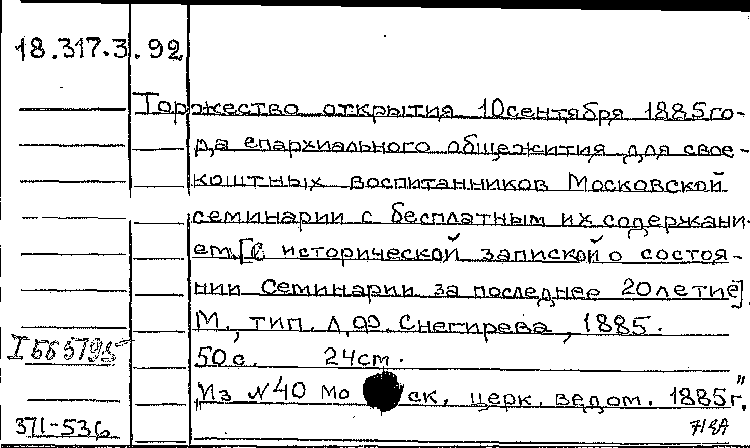 18.317.3.92
Торжество открытия 10 сентября 1885 го-
да епархиального общежития для свое-
коштных воспитанников Московской
семинарии с бесплатным их содержани-
ем. [С исторической запиской о состоя-
нии Семинарии за последнее 20летие].
М., тип. Л.Ф. Снегирева, 1885.
I 565795 50 с. 24 см.
"Из №40 Мо ск. церк. ведом. 1885 г."
371-536